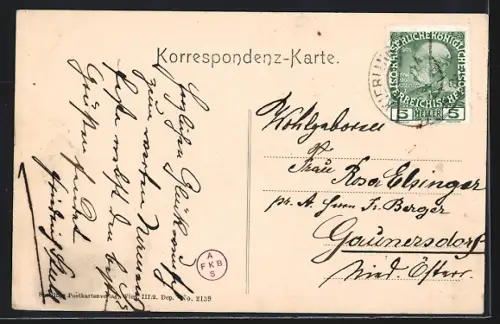 Korrespondenz-Karte.
KAISERLICHE KÖNIGLICHE
ÖSTERREICHISCHE POST
5 HELLER 5
KIERLING
Herzlichen Glückwunsch
zum werten Namens
feste nebst den besten
Grüßen sendet
Wohlgeboren
Frau Rosa Elsinger
pr. A. Herrn Fr. Berger
Gaunersdorf
Nied. Österr.
A
F K B
S
Postkartenverlag, Wien III/2. Dep. No. 2139